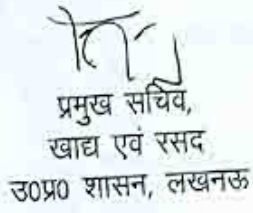 प्रमुख सचिव,
खाद्य एवं रसद
उ0प्र0 शासन, लखनऊ